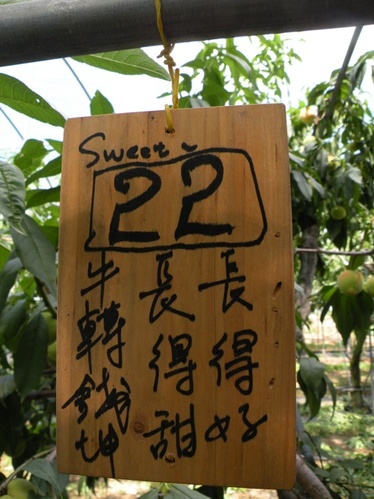 Sweet
22
長得好
長得甜
牛轉錢坤